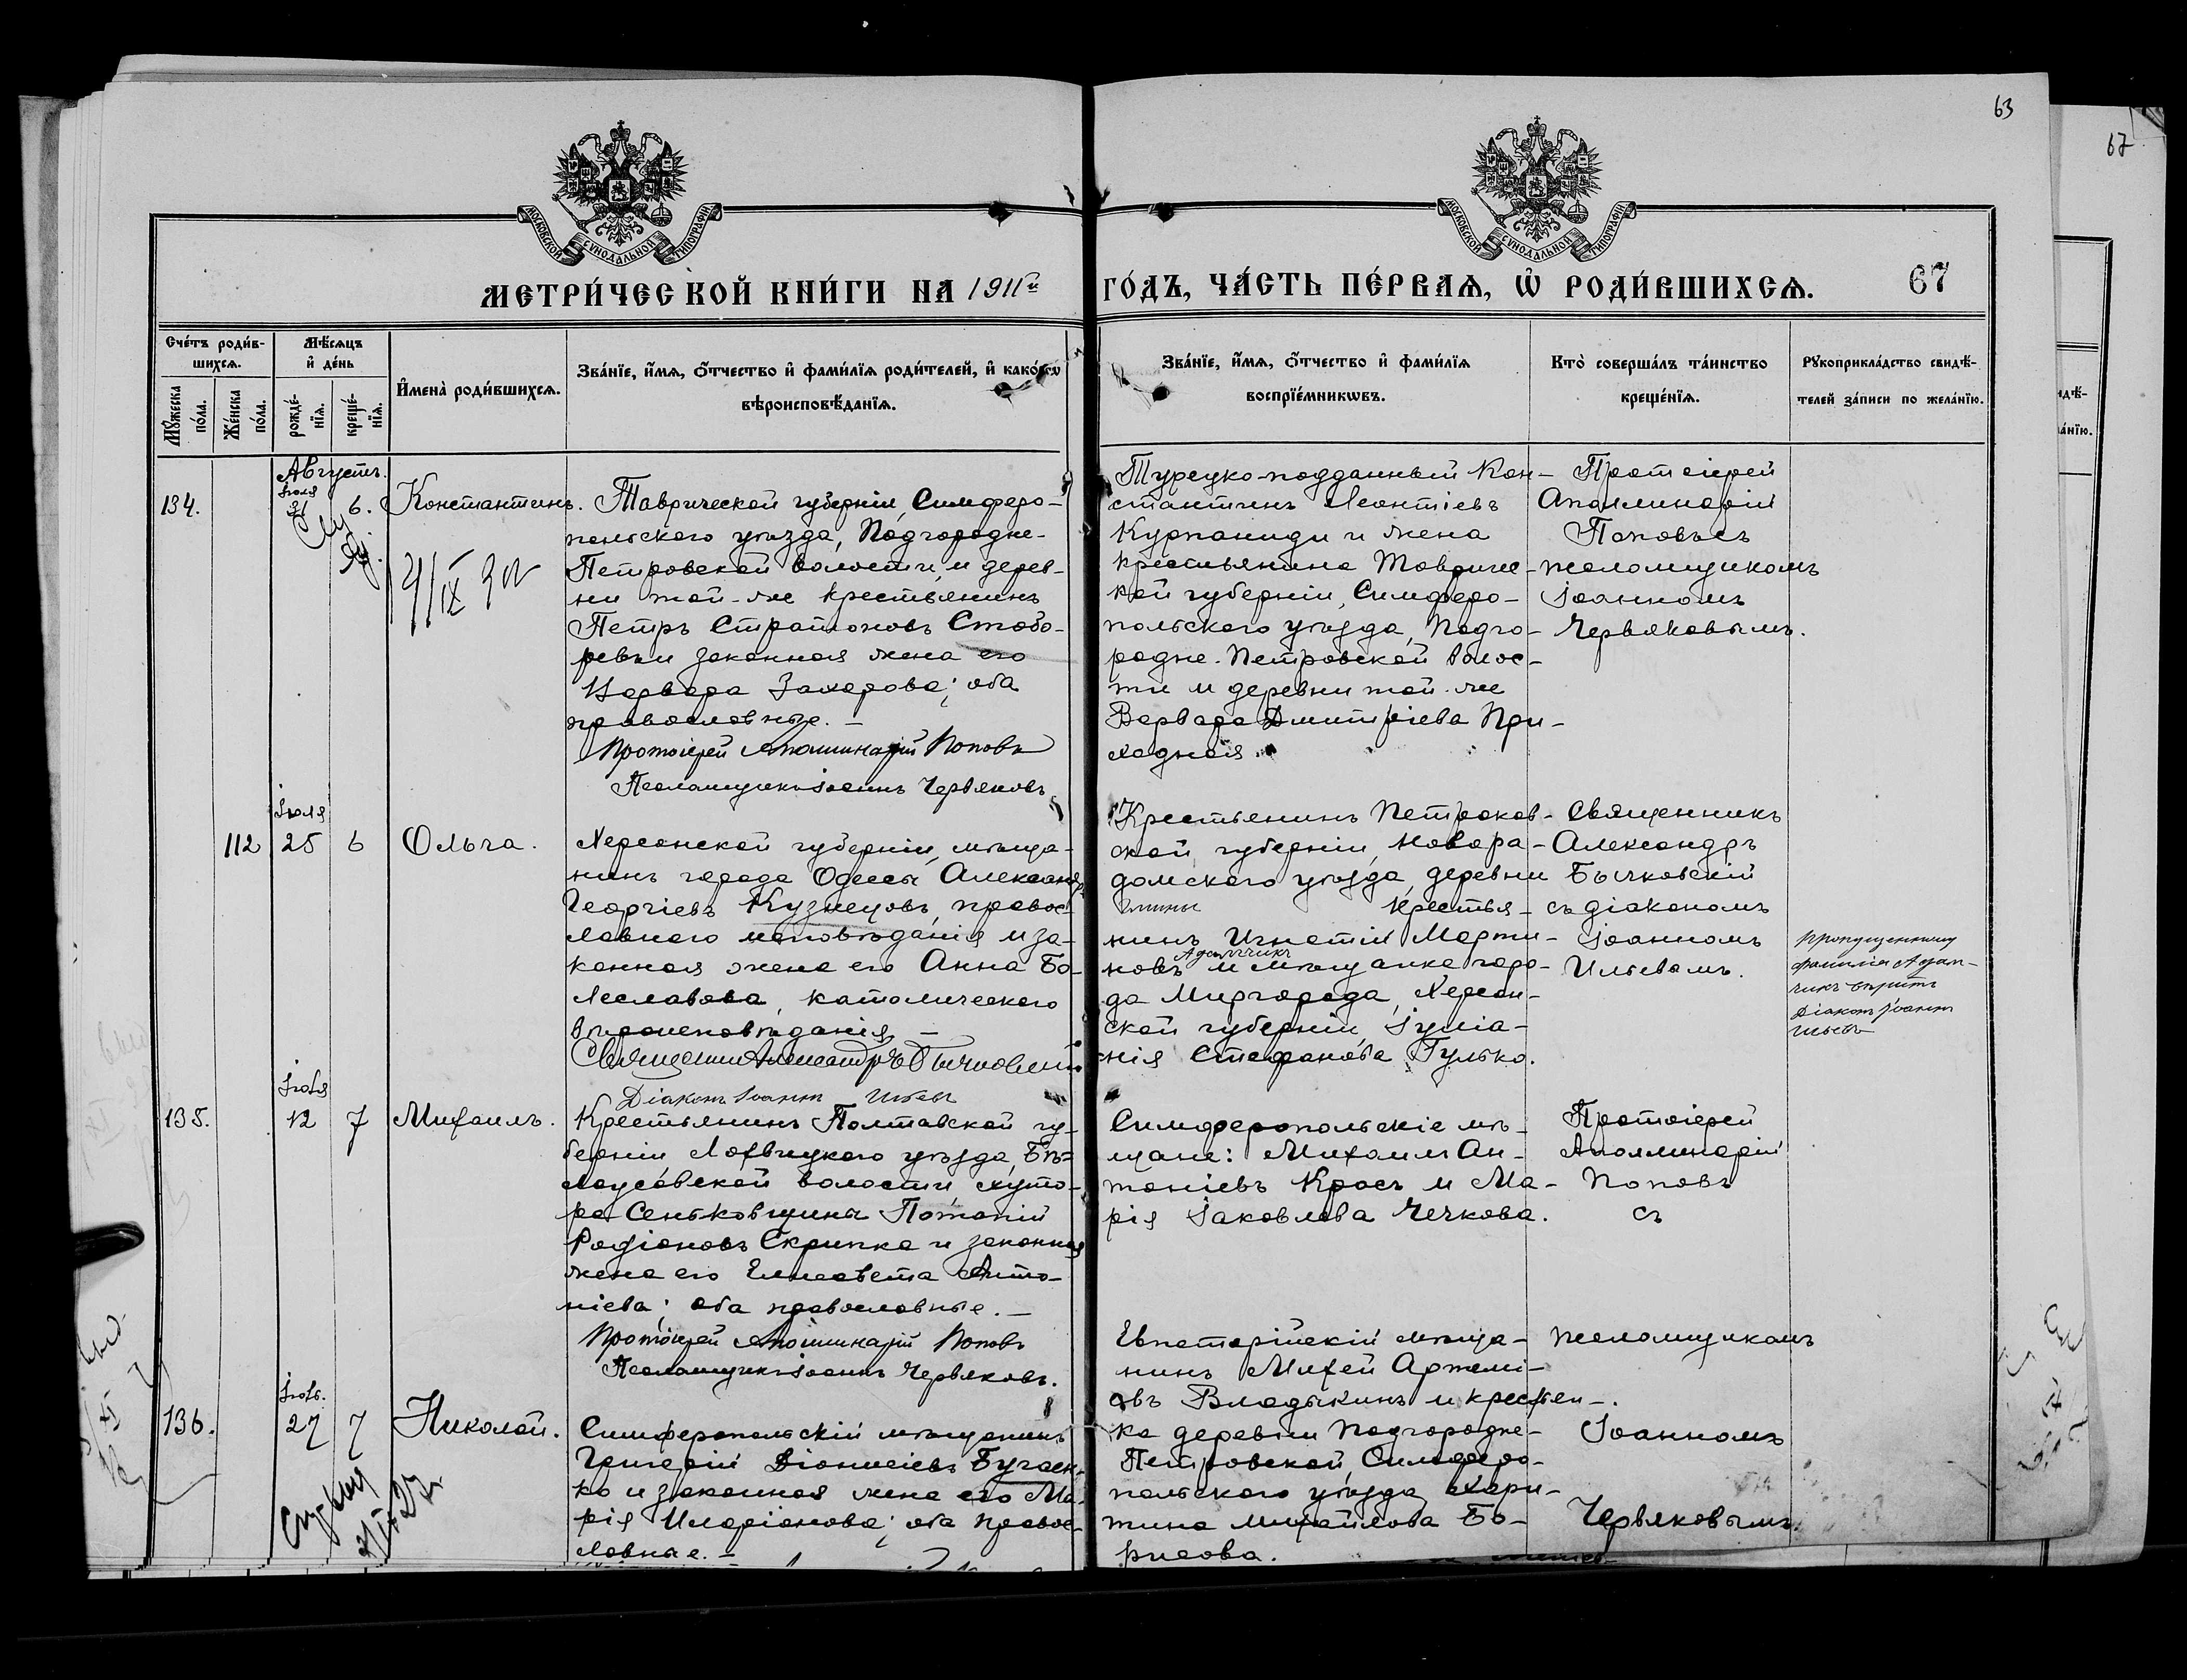 63
67
МОСКОВСКОЙ СѴНОДАЛЬНОЙ ТИПОГРАФІИ
МОСКОВСКОЙ СѴНОДАЛЬНОЙ ТИПОГРАФІИ
МЕТРИ́ЧЕСКОЙ КНИ́ГИ НА 1911й
ГО́ДЪ, ЧА́СТЬ ПЕ́РВАѦ, Ѡ҆ РОДИ́ВШИХСѦ.
67
Сче́тъ роди́в-
шихсѧ.
Мꙋ́жеска по́ла.
Же́нска по́ла.
Мѣ́сѧцъ
и҆ де́нь
рожде́-
нїѧ.
креще́-
нїѧ.
И҆мена̀ роди́вшихсѧ.
Зва́нїе, и҆́мѧ, ѻ҆́тчество и҆ фамилїѧ роди́телей, и҆ како́гѡ
вѣроисповѣ́данїѧ.
Зва́нїе, и҆́мѧ, ѻ҆́тчество и҆ фами́лїѧ
воспрїе́мникѡвъ.
Кто̀ соверша́лъ та́инство
креще́нїѧ.
Рꙋкоприкла́дство свидѣ́-
телей за́писи по жела́нїю.
Августъ.
134.
Іюля
31
6.
Константинъ.
Таврической губерніи, Симферо-
польскаго уѣзда, Подгородне-
Петровской волости, и дерев-
ни той-же крестьянинъ
Петръ Стратоновъ
законная жена его
Варвара Захарова; оба
православные. —
Протоіерей Аполлинарій Поповъ
Псаломщикъ Іоаннъ Червяковъ
Турецко-подданный Кон-
стантинъ Леонтіевъ
Курпаниди и жена
крестьянина Тавричес-
кой губерніи, Симферо-
польскаго уѣзда, Подго-
родне-Петровской волос-
ти и деревни той-же
Варвара Дмитріева При-
ходная.
Протоіерей
Аполлинарій
Поповъ съ
псаломщикомъ
Іоанномъ
Червяковымъ.
112
Іюля
25
6
Ольга.
Херсонской губерніи, мѣща-
нинъ города Одессы Александръ
Георгіевъ Кузнецовъ, правос-
лавнаго исповѣданія и за-
конная жена его Анна Бо-
леславова, католическаго
вѣроисповѣданія —
Священникъ Александръ Бычковскій
Діаконъ Іоаннъ Ильевъ
Крестьянинъ Петроков-
ской губерніи, Новора-
домскаго уѣзда, деревни
крестья-
нинъ Игнатій Марти-
Адамчикъ
новъ и мѣщанка горо-
да Миргорода, Херсон-
ской губерніи, Іуліа-
нія Стефанова Гулько.
Священникъ
Александръ
Бычковскій
съ діакономъ
Іоанномъ
Ильевымъ.
Пропущенному
фамиліи Адам-
чикъ вѣрить
Діаконъ Іоаннъ
Ильевъ
135.
Іюля
12
7
Михаилъ.
Крестьянинъ Полтавской гу-
берніи Лохвицкаго уѣзда, Бѣ-
лоусовской волости, хуто-
ра Сеньковщины Потапій
Родіоновъ Скрипка и законная
жена его Елисавета Анто-
ніева; оба православные. —
Протоіерей Аполлинарій Поповъ
Псаломщикъ Іоаннъ Червяковъ.
Симферопольскіе мѣ-
щане: Михаилъ Ан-
тоніевъ Красъ и Ма-
рія Іаковлева Чечкова.
Протоіерей
Аполлинарій
Поповъ
съ
136.
Іюль.
27
7
Николай.
Симферопольскій мѣщанинъ
Григорій Діонисіевъ Бугаен-
ко и законная жена его Ма-
рія Иларіонова; оба правос-
лавные. —
Евпаторійскій мѣща-
нинъ Михей Артемі-
овъ Владыкинъ и крестьян-
ка деревни Подгородне-
Петровской, Симферо-
польскаго уѣзда Хари-
тина Михайлова Бо-
рисова.
псаломщикомъ
Іоанномъ
Червяковымъ.